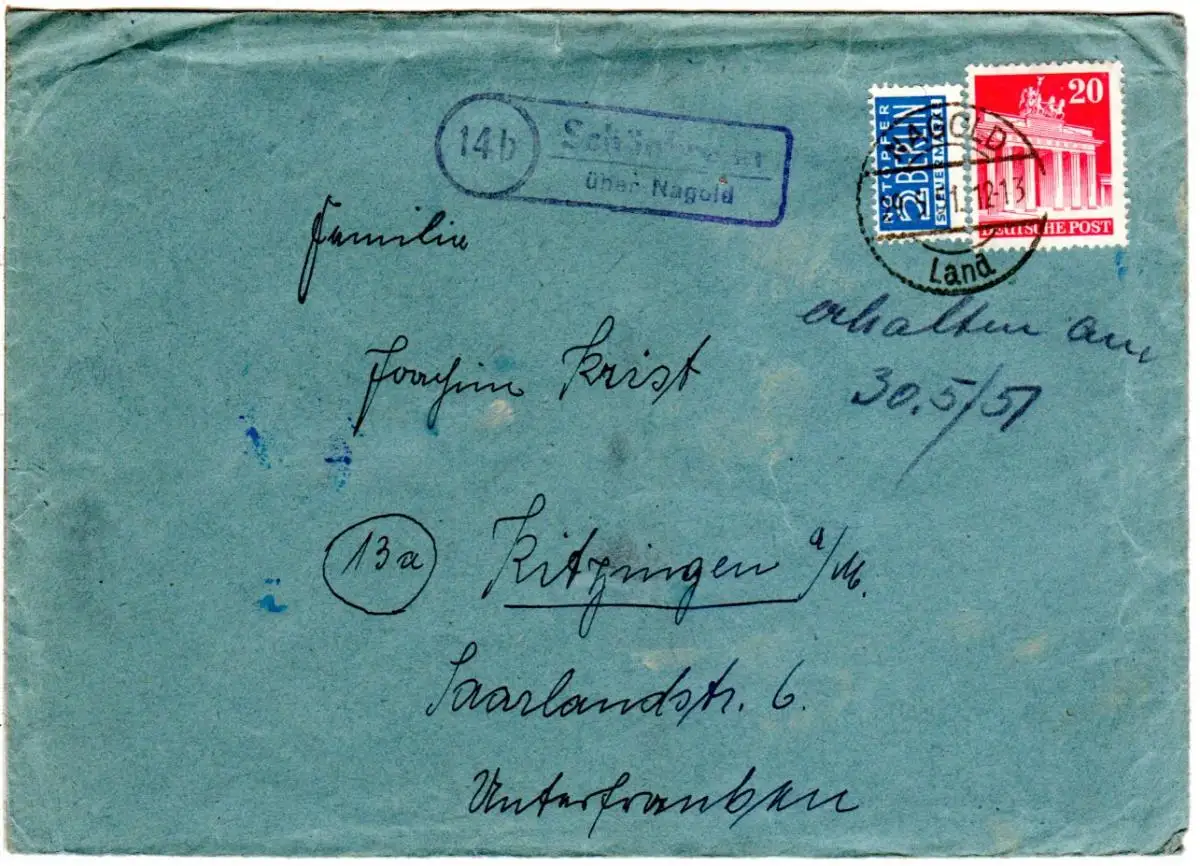 14b
über Nagold
NOTOPFER
2 BERLIN
STEUERMARKE
20
DEUTSCHE POST
NAGOLD
12-13
Land
Familie
Joachim Krist
erhalten am
30.5/51
13a
Kitzingen a/M.
Saarlandstr. 6.
Unterfranken